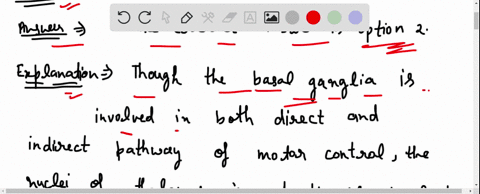 Answer ⇒ option 2.
Explanation ⇒ Though the basal ganglia is
involved in both direct and
indirect pathway of motar control, the
nuclei of